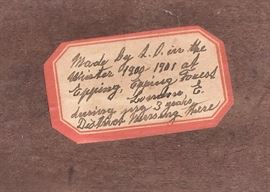 Made by S. D. in the
Winter 1900-1901 at
Epping, Epping Forest
London, E.
during my 3 years
District Nursing there